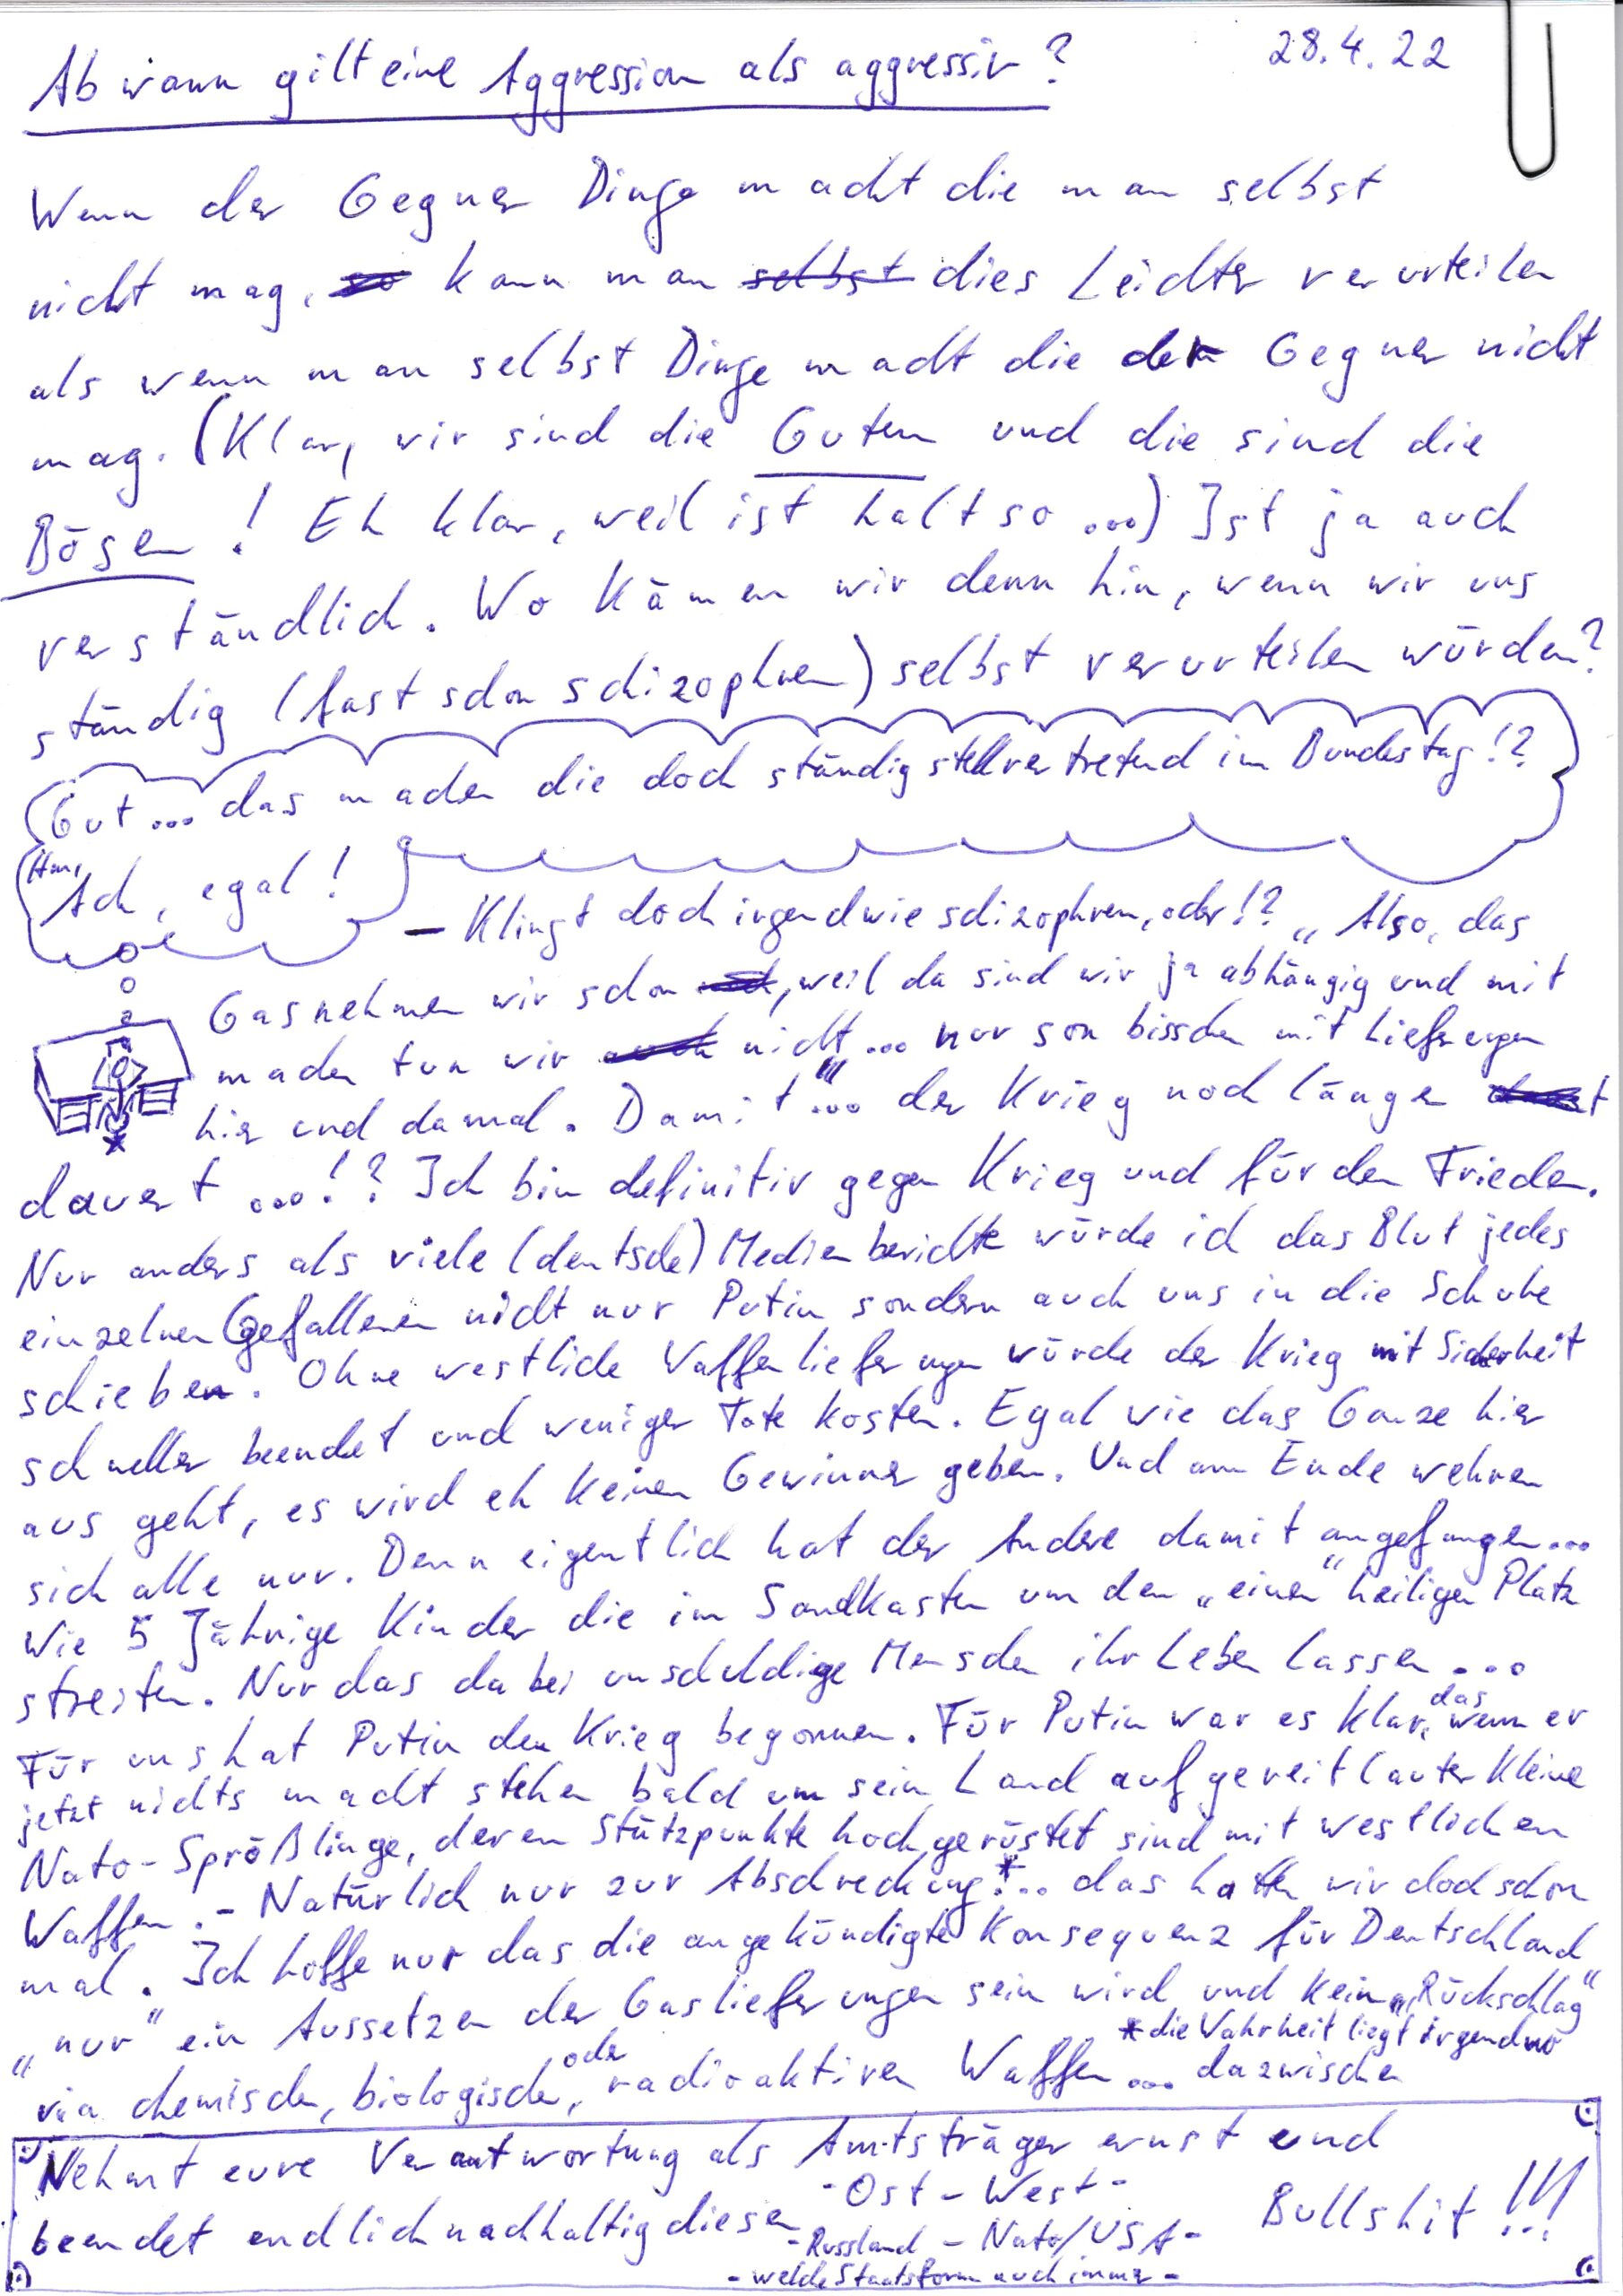 Ab wann gilt eine Aggression als aggressiv?
28.4.22
Wenn der Gegner Dinge macht die man selbst
nicht mag, so kann man selbst dies Leichter verurteilen
als wenn man selbst Dinge macht die der Gegner nicht
mag. (Klar, wir sind die Guten und die sind die
Bösen! Eh klar, weil ist halt so ...) Ist ja auch
verständlich. Wo kämen wir denn hin, wenn wir uns
ständig (fast schon schizophren) selbst verurteilen würden?
Gut ... das machen die doch ständig stellvertretend im Bundestag!?
Hm,
Ach, egal!
- Klingt doch irgendwie schizophren, oder!? „Also, das
Gas nehmen wir schon, weil da sind wir ja abhängig und mit
machen tun wir auch nicht ... nur son bisschen mit Lieferungen
hier und da mal. Damit"... der Krieg noch länger
dauert ...!? Ich bin definitiv gegen Krieg und für den Frieden.
Nur anders als viele (deutsche) Medienberichte würde ich das Blut jedes
einzelnen Gefallenen nicht nur Putin sondern auch uns in die Schuhe
schieben. Ohne westliche Waffenlieferungen würde der Krieg mit Sicherheit
schneller beendet und weniger Tote kosten. Egal wie das Ganze hier
aus geht, es wird eh keinen Gewinner geben. Und am Ende wehren
sich alle nur. Denn eigentlich hat der Andere damit angefangen...
Wie 5 Jährige Kinder die im Sandkasten um den „einen" heiligen Platz
streiten. Nur das dabei unschuldige Menschen ihr Leben lassen ...
Für uns hat Putin den Krieg begonnen. Für Putin war es klar, das wenn er
jetzt nichts macht stehen bald um sein Land aufgereit lauter kleine
Nato-Sprößlinge, deren Stützpunkte hochgerüstet sind mit westlichen
Waffen. - Natürlich nur zur Abschreckung!*.. das hatten wir doch schon
mal. Ich hoffe nur das die angekündigte Konsequenz für Deutschland
„nur" ein Aussetzen der Gaslieferungen sein wird und kein „Rückschlag"
via chemischen, biologischen, oder radioaktiven Waffen ...
*die Wahrheit liegt irgendwo
dazwischen
Nehmt eure Verantwortung als Amtsträger ernst und
beendet endlich nachhaltig diesen
- Ost - West -
- Russland - Nato/USA -
- welche Staatsform auch immer -
Bullshit!!!